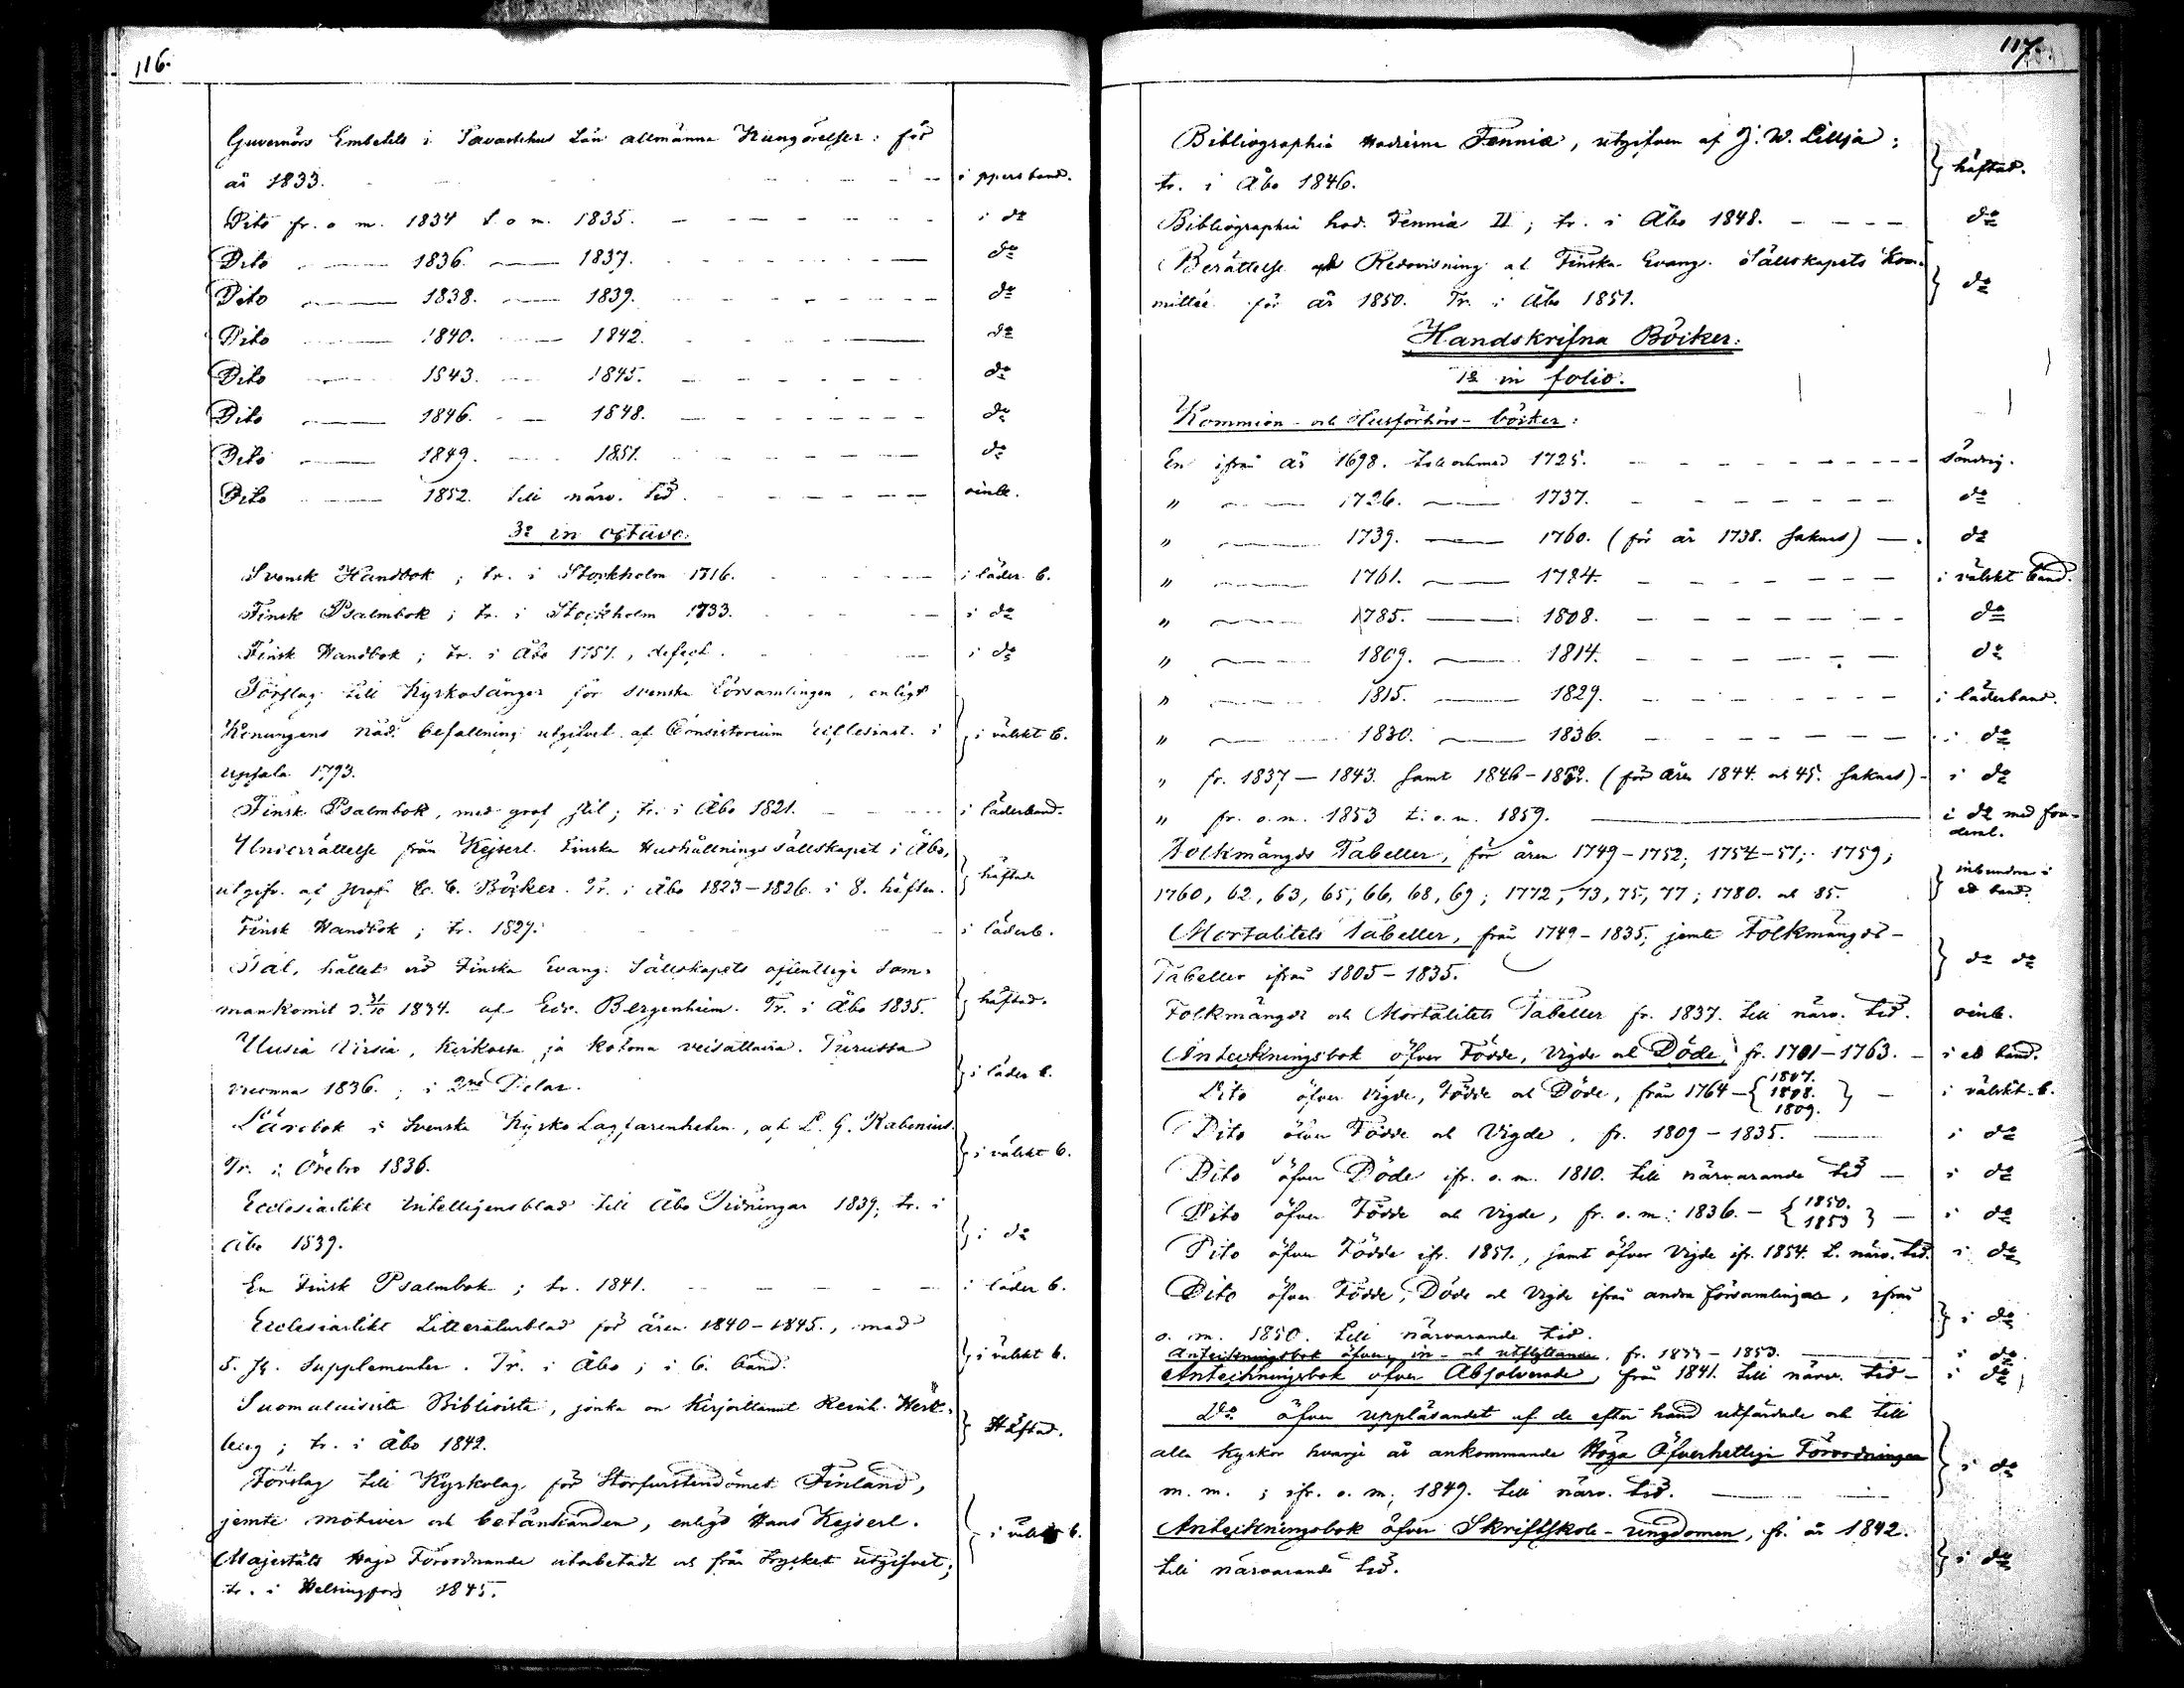 116.
Guvernörs Embetets i Tavastehus Län allmänna Kungörelser: för
år 1833. - - - - - i ppersband.
Dito fr. o m. 1834 t. o m. 1835. - - - - - i do
Dito — 1836. — 1837. - - - - - do
Dito — 1838. — 1839. - - - - - do
Dito — 1840. — 1842. - - - - - do
Dito — 1843. — 1845. - - - - - do
Dito — 1846. — 1848. - - - - - do
Dito — 1849. — 1851. - - - - - do
Dito — 1852. till närv. tid. - - - - - oinb.
3o in octavo.
Svensk Handbok; tr. i Stockholm 1716. - - - i läder b.
Finsk Psalmbok; tr. i Stockholm 1733. - - - i do
Finsk Handbok; tr. i Åbo 1757., defect. - - - i do
Förslag till Kyrkosånger för svenska Församlingen, enligt
Konungens Nåd. befallning utgifvet af Consistorium Ecclesiast. i } i välskt b.
Upsala 1793.
Finsk Psalmbok, med grof stil; tr. i Åbo 1821. - - - i läderband.
Underrättelse från Kejserl. Finska Hushållnings sällskapet i Åbo,
utgifv. af prof. C. C. Böcker. Tr. i Åbo 1823-1826. i 8. häften. } häftad
Finsk Handbok; tr. 1827. - - i läderb.
Tal, hållet vid Finska Evang. Sällskapets offentliga Sam-
mankomst d. 31/10 1834. af Edv. Bergenheim. Tr. i Åbo 1835. } häftad.
Uusia Virsiä, Kirkossa ja Kotona veisattavia. Turussa
vuonna 1836.; i 2ne Delar. } i läder b.
Lärobok i Svenska Kyrko Lagfarenheten, af L. G. Rabenius.
Tr. i Örebro 1836. } i välskt b.
Ecclesiastikt Intelligensblad till Åbo Tidningar 1839; tr. i
Åbo 1839. } i do
En Finsk Psalmbok; tr. 1841. - - - - - i läder b.
Ecclesiastikt Litteraturblad för åren 1840-1845., med
5. st. Supplementer. Tr. i Åbo; i 6. band. } i välskt b.
Suomalaisista Biblioista, jonka on kirjoittanut Reinh. Hert-
berg; tr. i Åbo 1842. } Häftad.
Förslag till Kyrkolag för Storfurstendömet Finland,
jemte motiver och betänkanden, enligt Hans Kejserl. } i välskt b.
Majestäts Höga Förordnande utarbetadt och från trycket utgifvet;
tr. i Helsingfors 1845.
117.
Bibliographia Hodierna Fennia, utgifven af J. W. Lillja;
tr. i Åbo 1846. } häftad.
Bibliographia hod. Fennia II; tr. i Åbo 1848. - - - - do
Berättelse och Redovisning af Finska Evang. Sällskapets Kom-
mitté för år 1850. Tr. i Åbo 1851. } do
Handskrifna Böcker:
1o in folio.
Kommion- och Husförhörs-böcker:
En ifrån år 1698. till och med 1725. - - - - - söndrig.
" — 1726. — 1737. - - - - - do
" — 1739. — 1760. (för år 1738. saknas) — do
" — 1761. — 1784. - - - - - i välskt band.
" — 1785. — 1808. - - - - - do
" — 1809. — 1814. - - - - - do
" — 1815. — 1829. - - - - - i läderband.
" — 1830. — 1836. - - - - - i do
" fr. 1837 — 1843. samt 1846-1852. (för åren 1844. och 45. saknas) - i do
" fr. o. m. 1853 t. o. m. 1859. — i do med fou-
deral.
Folkmängds Tabeller, för åren 1749-1752; 1754-57; 1759;
1760, 62, 63, 65, 66, 68, 69; 1772, 73, 75, 77; 1780. och 85. } inbundna i ett band.
Mortalitets Tabeller, från 1749-1835; jemte Folkmängds-
Tabeller ifrån 1805-1835. } do do
Folkmängds och Mortalitets Tabeller fr. 1837. till närv. tid. oinb.
Anteckningsbok öfver Födde, Vigde och Döde, fr. 1701-1763. - i ett band.
Dito öfver Vigde, Födde och Döde, från 1764 - { 1807. 1808. 1809. } - i välskt b.
Dito öfver Födde och Vigde, fr. 1809-1835. — i do
Dito öfver Döde ifr. o. m. 1810. till närvarande tid — i do
Dito öfver Födde och Vigde, fr. o. m. 1836. - { 1850. 1853 } - i do
Dito öfver Födde ifr. 1851., samt öfver Vigde ifr. 1854. t. närv. tid. i do
Dito öfver Födde, Döde och Vigde ifrån andra församlingar, ifrån
o. m. 1850. till närvarande tid. } i do
Anteckningsbok öfver, in- och utflyttande, fr. 1833-1853. — i do
Anteckningsbok öfver Absolverade, från 1841. till närv. tid - i do
Do öfver uppläsandet af de efter hand utfärdade och till
alla kyrkor hvarje år ankommande Höga Öfverhetliga Förordningar } i do
m. m.; ifr. o. m. 1849. till närv. tid. —
Anteckningsbok öfver Skriftskole-ungdomen, fr. år 1842.
till närvarande tid. } i do